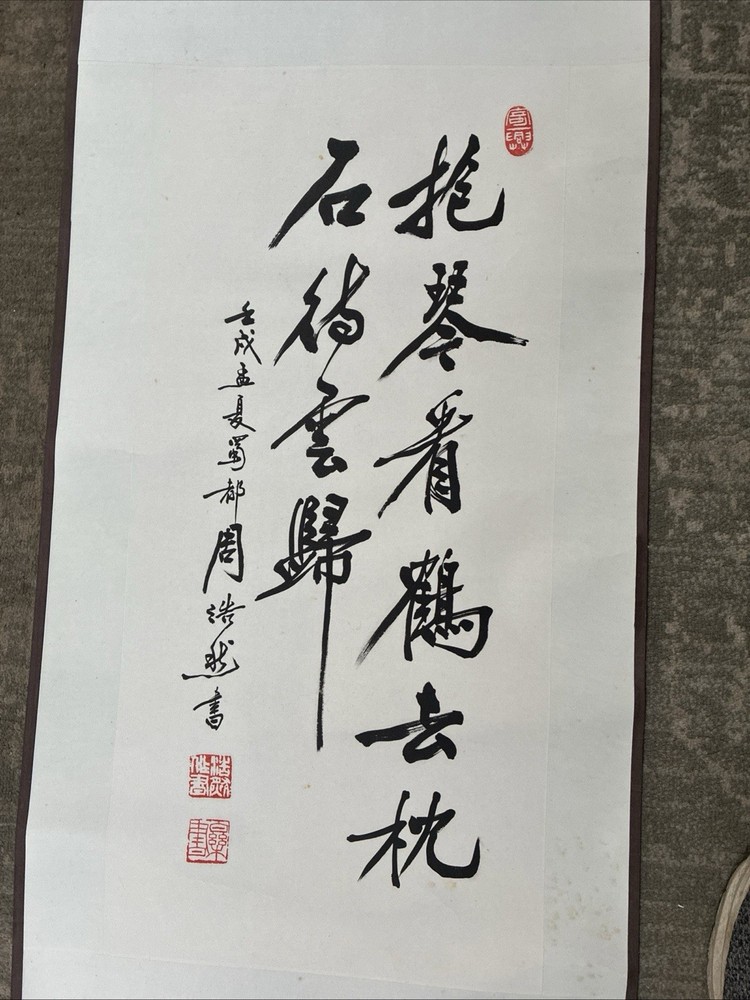 抱琴看鶴去枕
石待雲歸
壬戌孟夏蜀都周浩然書